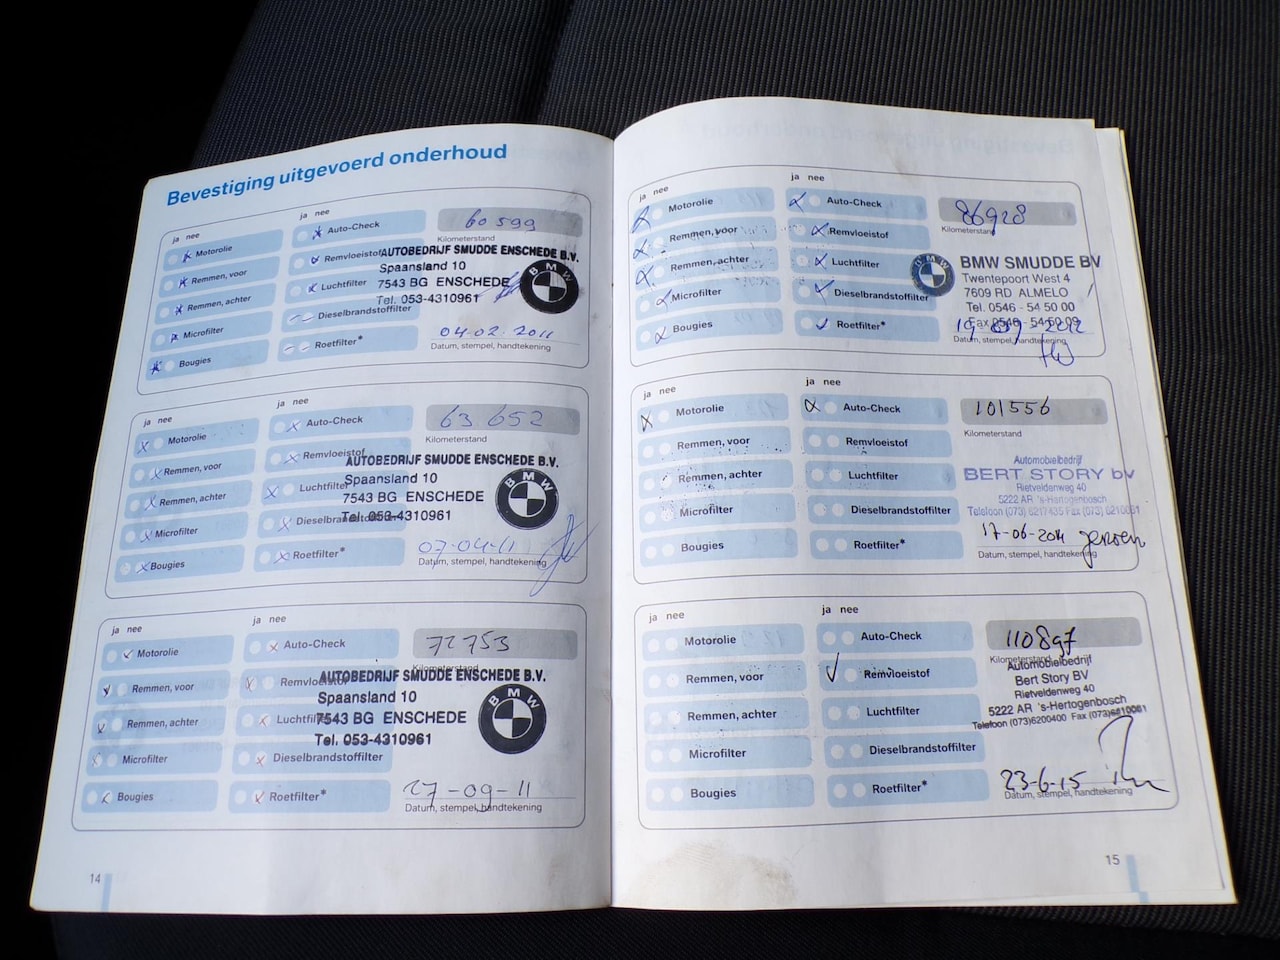 Bevestiging uitgevoerd onderhoud
ja nee
ja nee
Motorolie
Auto-Check
60 599
Kilometerstand
Remmen, voor
Remvloeistof
AUTOBEDRIJF SMUDDE ENSCHEDE B.V.
Spaansland 10
7543 BG ENSCHEDE
Tel. 053-4310961
BMW
Remmen, achter
Luchtfilter
Microfilter
Dieselbrandstoffilter
Bougies
Roetfilter*
04.02.2011
Datum, stempel, handtekening
ja nee
ja nee
Motorolie
Auto-Check
63 652
Kilometerstand
Remmen, voor
Remvloeistof
AUTOBEDRIJF SMUDDE ENSCHEDE B.V.
Spaansland 10
7543 BG ENSCHEDE
Tel. 053-4310961
BMW
Remmen, achter
Luchtfilter
Microfilter
Dieselbrandstoffilter
Bougies
Roetfilter*
07-04-11
Datum, stempel, handtekening
ja nee
ja nee
Motorolie
Auto-Check
72753
Kilometerstand
Remmen, voor
Remvloeistof
AUTOBEDRIJF SMUDDE ENSCHEDE B.V.
Spaansland 10
7543 BG ENSCHEDE
Tel. 053-4310961
BMW
Remmen, achter
Luchtfilter
Microfilter
Dieselbrandstoffilter
Bougies
Roetfilter*
27-09-11
Datum, stempel, handtekening
14
ja nee
ja nee
Motorolie
Auto-Check
86928
Kilometerstand
Remmen, voor
Remvloeistof
BMW
BMW SMUDDE BV
Twentepoort West 4
7609 RD ALMELO
Tel. 0546 - 54 50 00
Fax 0546 - 54 50 09
Remmen, achter
Luchtfilter
Microfilter
Dieselbrandstoffilter
Bougies
Roetfilter*
Datum, stempel, handtekening
ja nee
ja nee
Motorolie
Auto-Check
101556
Kilometerstand
Remmen, voor
Remvloeistof
Automobielbedrijf
BERT STORY bv
Rietveldenweg 40
5222 AR 's-Hertogenbosch
Telefoon (073) 6217435 Fax (073) 6210081
Remmen, achter
Luchtfilter
Microfilter
Dieselbrandstoffilter
Bougies
Roetfilter*
17-06-2014 jeroen
Datum, stempel, handtekening
ja nee
ja nee
Motorolie
Auto-Check
110897
Kilometerstand
Remmen, voor
Remvloeistof
Automobielbedrijf
Bert Story BV
Rietveldenweg 40
5222 AR 's-Hertogenbosch
Telefoon (073)6200400 Fax (073)6210081
Remmen, achter
Luchtfilter
Microfilter
Dieselbrandstoffilter
Bougies
Roetfilter*
23-6-15
Datum, stempel, handtekening
15